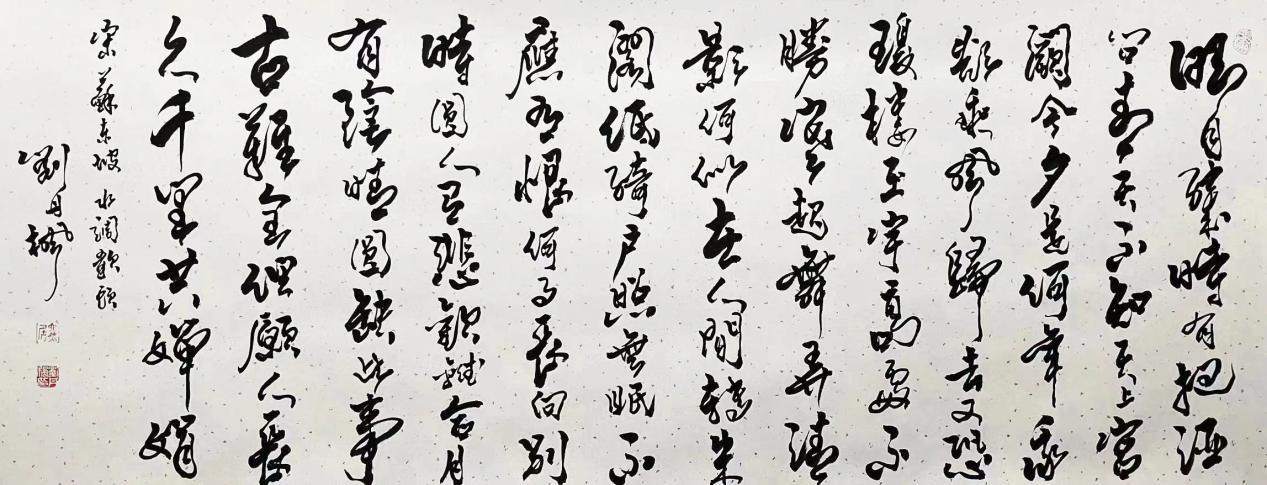 明月幾時有把酒
問青天不知天上宮
闕今夕是何年我
欲乘風歸去又恐
瓊樓玉宇高處不
勝寒起舞弄清
影何似在人間轉朱
閣低綺戶照無眠不
應有恨何事長向別
時圓人有悲歡離合月
有陰晴圓缺此事
古難全但願人長
久千里共嬋娟
宋蘇東坡水調歌頭
劉丹楓